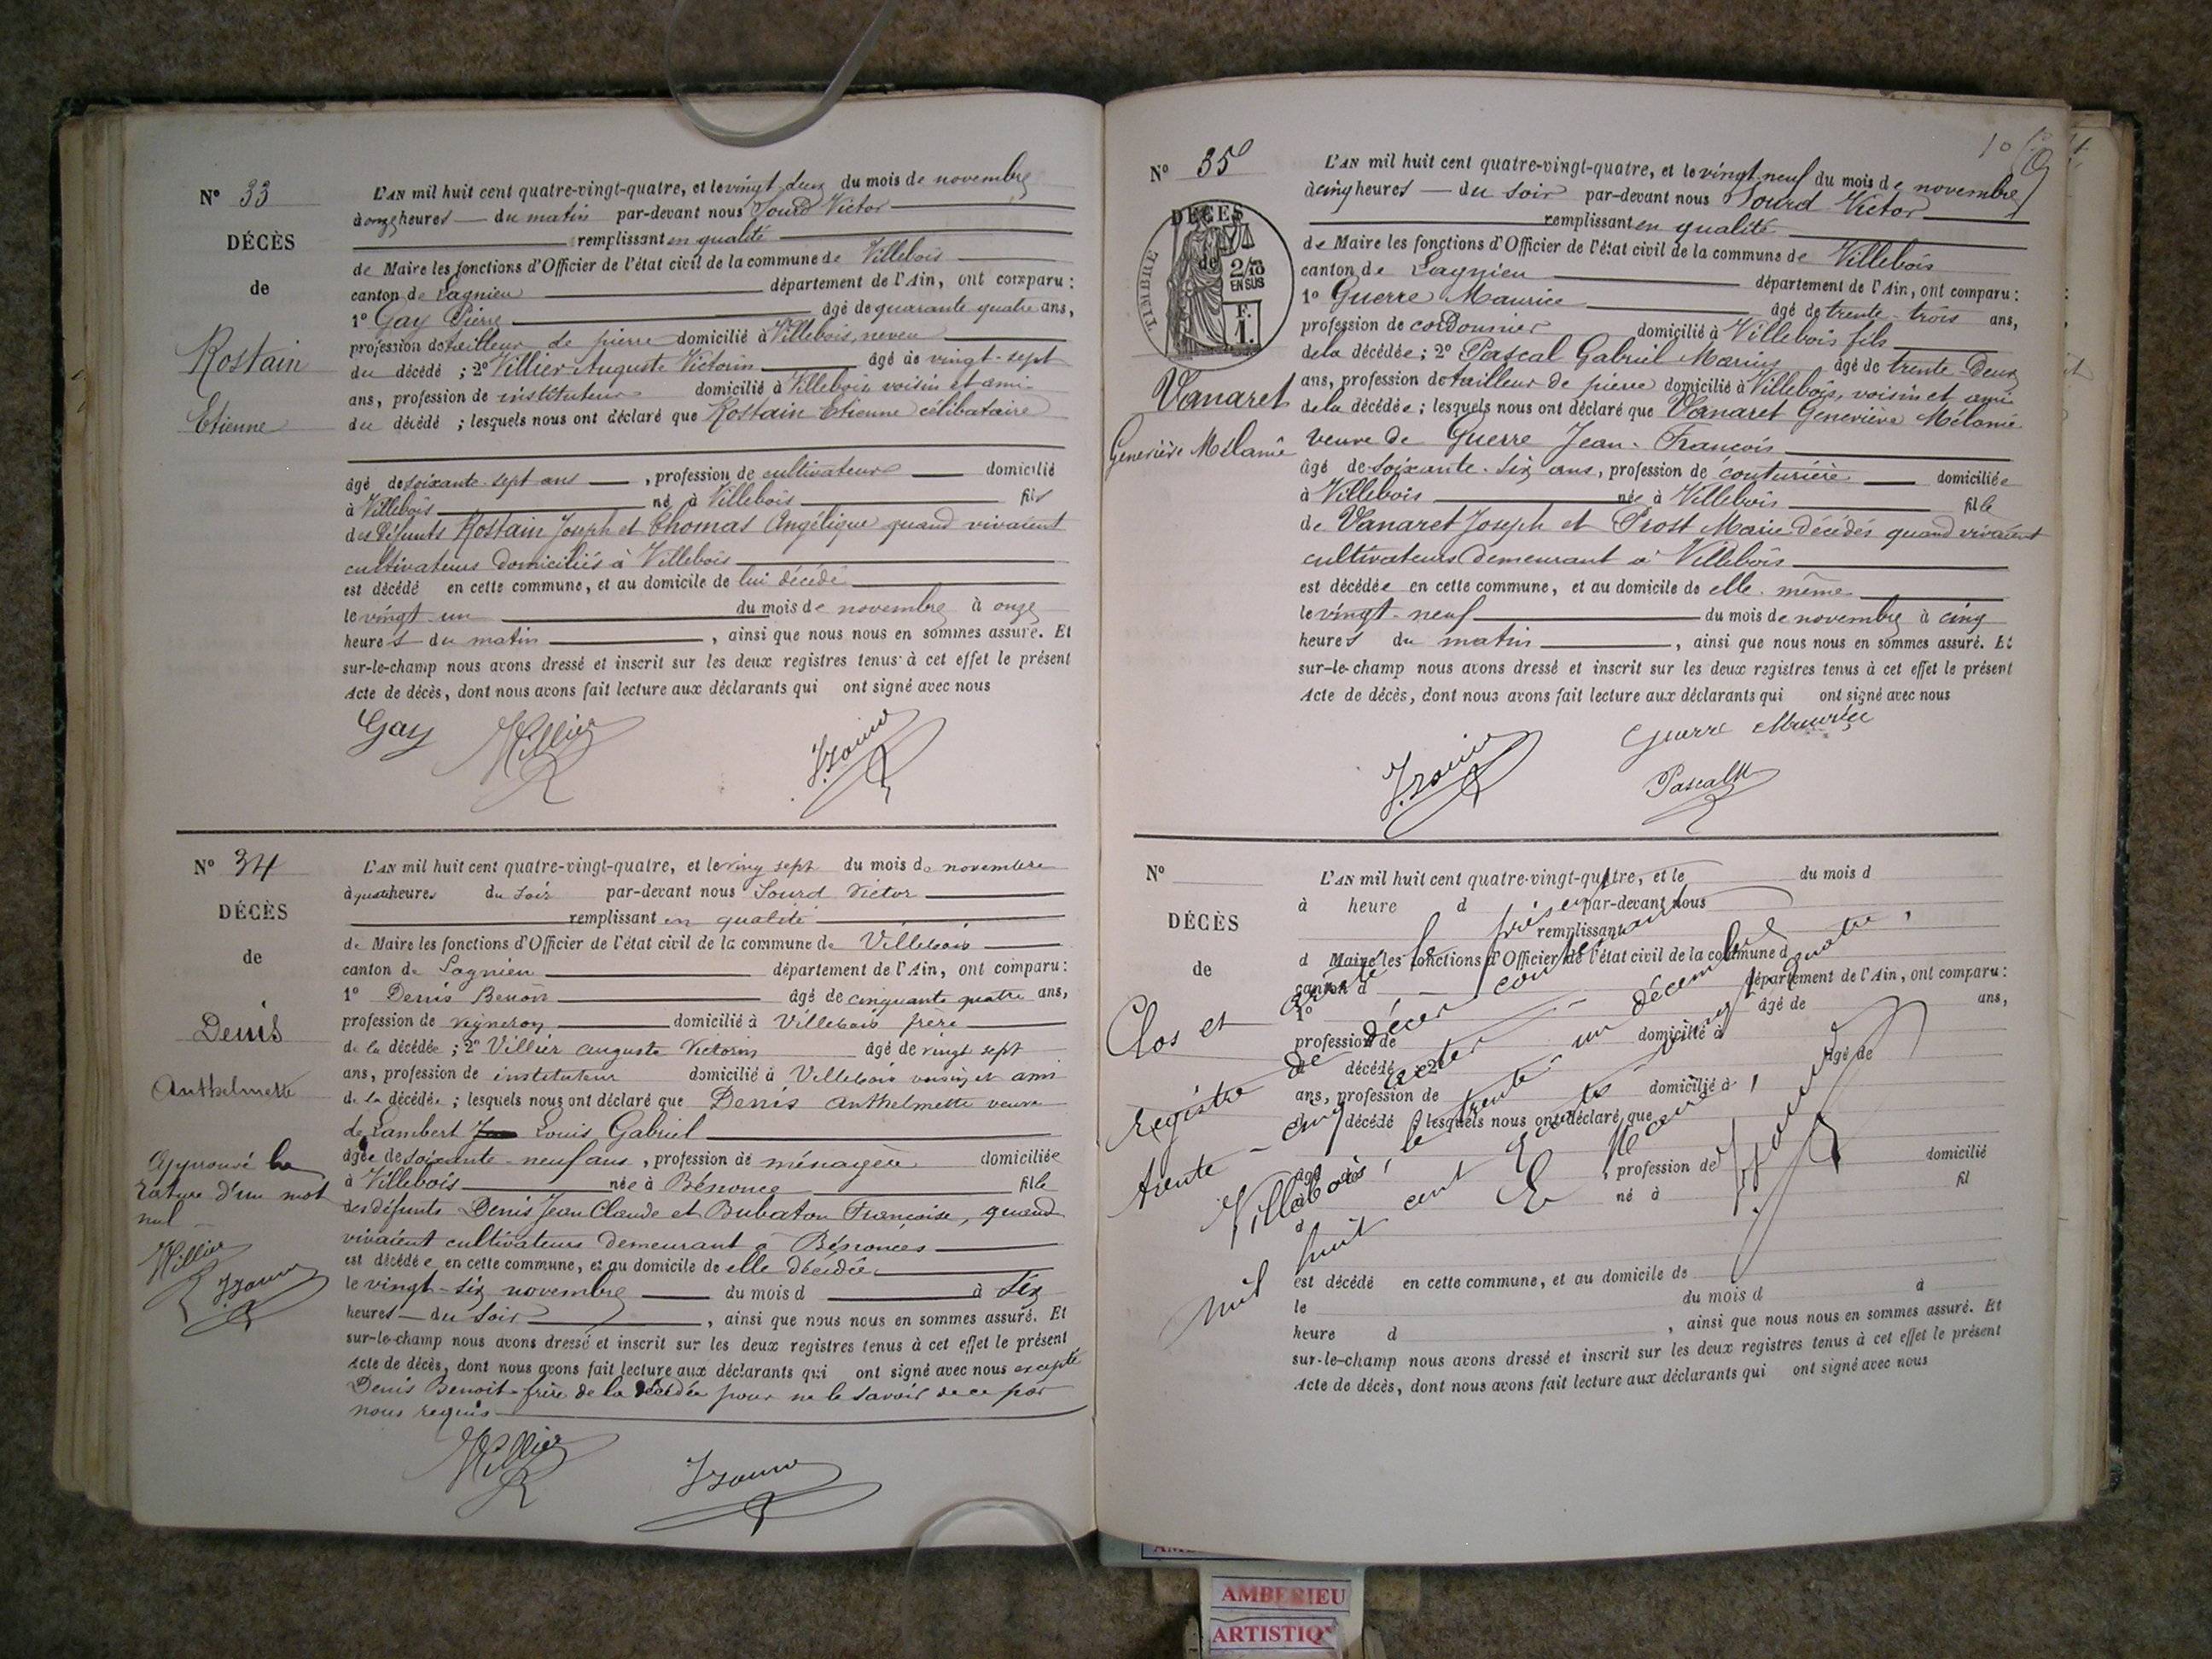 N° 33
DÉCÈS
de
Rostain
Etienne
L'AN mil huit cent quatre-vingt-quatre, et le vingt-deux du mois de novembre
à onze heures du matin par-devant nous Sourd Victor
remplissant en qualité
de Maire les fonctions d'Officier de l'état civil de la commune de Villebois
canton de Lagnieu département de l'Ain, ont comparu :
1° Gay Pierre âgé de quarante quatre ans,
profession de tailleur de pierre domicilié à Villebois, neveu
du décédé ; 2° Villier Auguste Victorin âgé de vingt-sept
ans, profession de instituteur domicilié à Villebois voisin et ami
du décédé ; lesquels nous ont déclaré que Rostain Etienne célibataire
âgé de soixante-sept ans , profession de cultivateur domicilié
à Villebois né à Villebois fils
des défunts Rostain Joseph et Thomas Angélique quand vivaient
cultivateurs domiciliés à Villebois
est décédé en cette commune, et au domicile de lui décédé
le vingt-un du mois de novembre à onze
heures du matin , ainsi que nous nous en sommes assuré. Et
sur-le-champ nous avons dressé et inscrit sur les deux registres tenus à cet effet le présent
Acte de décès, dont nous avons fait lecture aux déclarants qui ont signé avec nous
Gay Villier
N° 34
DÉCÈS
de
Denis
Anthelmette
Approuvé la
rature d'un mot
nul
Villier
L'AN mil huit cent quatre-vingt-quatre, et le ving sept du mois de novembre
à quatre heures du soir par-devant nous Sourd Victor
remplissant en qualité
de Maire les fonctions d'Officier de l'état civil de la commune de Villebois
canton de Lagnieu département de l'Ain, ont comparu :
1° Denis Benoit âgé de cinquante quatre ans,
profession de vigneron domicilié à Villebois frère
de la décédée ; 2° Villier Auguste Victorin âgé de vingt sept
ans, profession de instituteur domicilié à Villebois voisin et ami
de la décédée ; lesquels nous ont déclaré que Denis Anthelmette veuve
de Lambert Louis Gabriel
âgée de soixante-neuf ans , profession de ménagère domiciliée
à Villebois née à Bénonce fille
des défunts Denis Jean Claude et Bubaton Françoise, quand
vivaient cultivateurs demeurant à Bénonces
est décédée en cette commune, et au domicile de elle décédée
le vingt-six novembre du mois d à six
heures du soir , ainsi que nous nous en sommes assuré. Et
sur-le-champ nous avons dressé et inscrit sur les deux registres tenus à cet effet le présent
Acte de décès, dont nous avons fait lecture aux déclarants qui ont signé avec nous excepté
Denis Benoit frère de la décédée pour ne le savoir de ce par
nous requis
Villier
N° 35
DÉCÈS
de
TIMBRE
2/10
EN SUS
F.
1.
Vanaret
Geneviève Mélanie
L'AN mil huit cent quatre-vingt-quatre, et le vingt-neuf du mois de novembre
à cinq heures du soir par-devant nous Sourd Victor
remplissant en qualité
de Maire les fonctions d'Officier de l'état civil de la commune de Villebois
canton de Lagnieu département de l'Ain, ont comparu :
1° Guerre Maurice âgé de trente-trois ans,
profession de cordonnier domicilié à Villebois fils
de la décédée ; 2° Pascal Gabriel Marius âgé de trente-deux
ans, profession de tailleur de pierre domicilié à Villebois, voisin et ami
de la décédée ; lesquels nous ont déclaré que Vanaret Geneviève Mélanie
veuve de Guerre Jean-François
âgé de soixante-six ans, profession de couturière domiciliée
à Villebois née à Villebois fille
de Vanaret Joseph et Prost Marie décédés quand vivaient
cultivateurs demeurant à Villebois
est décédée en cette commune, et au domicile de elle même
le vingt-neuf du mois de novembre à cinq
heures du matin , ainsi que nous nous en sommes assuré. Et
sur-le-champ nous avons dressé et inscrit sur les deux registres tenus à cet effet le présent
Acte de décès, dont nous avons fait lecture aux déclarants qui ont signé avec nous
Guerre Maurice
Pascal
N°
DÉCÈS
de
L'AN mil huit cent quatre-vingt-quatre, et le du mois d
à heure d par-devant nous
remplissant
d Maire les fonctions d'Officier de l'état civil de la commune d
canton d département de l'Ain, ont comparu :
1° âgé de ans,
profession de domicilié à
d décédé ; 2° âgé de
ans, profession de domicilié à
d décédé ; lesquels nous ont déclaré que
âgé , profession de domicilié
à né à fil
d
est décédé en cette commune, et au domicile de
le du mois d à
heure d , ainsi que nous nous en sommes assuré. Et
sur-le-champ nous avons dressé et inscrit sur les deux registres tenus à cet effet le présent
Acte de décès, dont nous avons fait lecture aux déclarants qui ont signé avec nous
Clos et arrêté le présent
registre de décès contenant
trente-cinq actes
Villebois, le trente-un décembre
mil huit cent quatre-vingt-quatre,
Le Maire,
AMBERIEU
ARTISTIQ